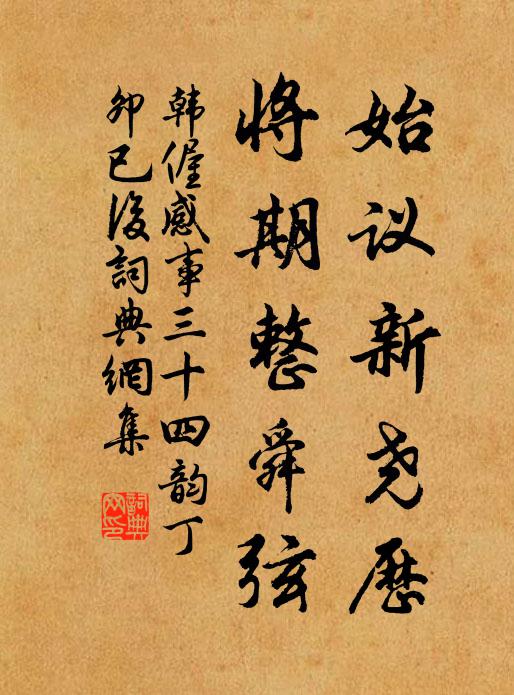 始议新尧历
将期整舜弦
韩偓感事三十四韵丁
卯已后詞典網集
詞典網印